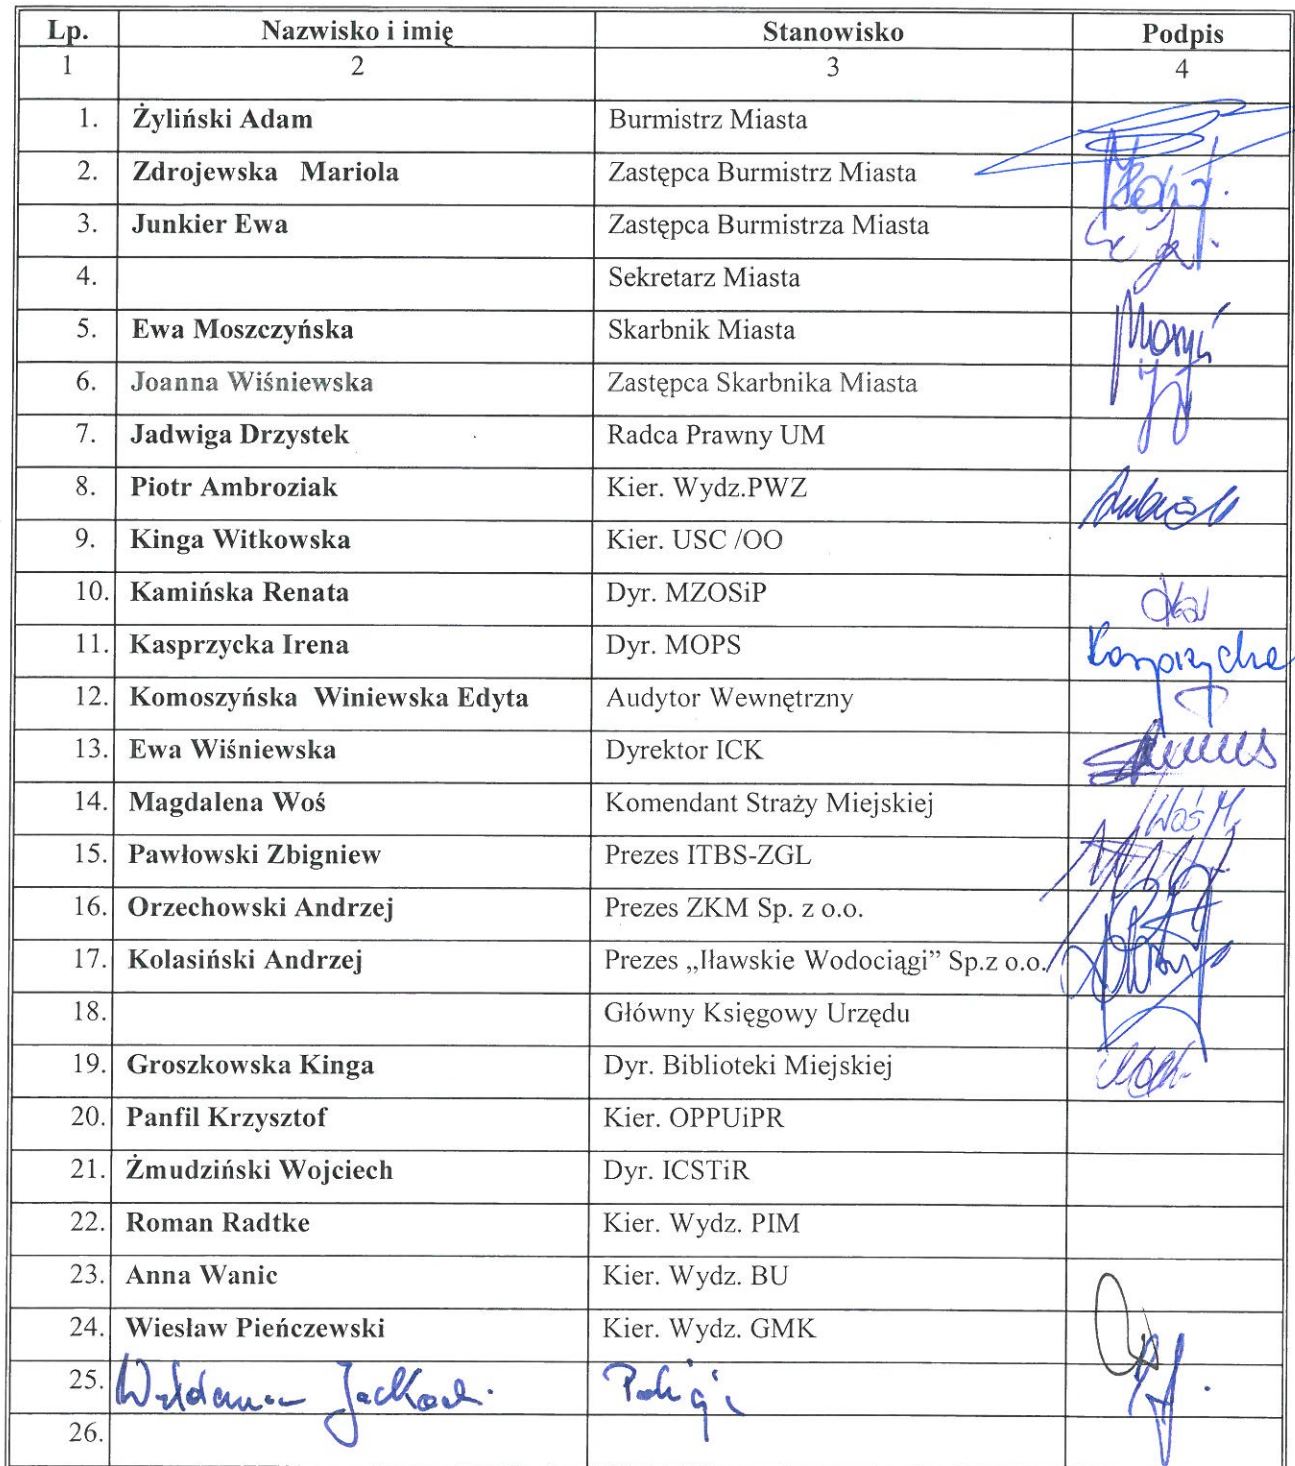 Lp. Nazwisko i imię Stanowisko Podpis
1 2 3 4
1. Żyliński Adam Burmistrz Miasta
2. Zdrojewska Mariola Zastępca Burmistrz Miasta
3. Junkier Ewa Zastępca Burmistrza Miasta
4. Sekretarz Miasta
5. Ewa Moszczyńska Skarbnik Miasta
6. Joanna Wiśniewska Zastępca Skarbnika Miasta
7. Jadwiga Drzystek Radca Prawny UM
8. Piotr Ambroziak Kier. Wydz.PWZ
9. Kinga Witkowska Kier. USC /OO
10. Kamińska Renata Dyr. MZOSiP
11. Kasprzycka Irena Dyr. MOPS Kasprzycka
12. Komoszyńska Winiewska Edyta Audytor Wewnętrzny
13. Ewa Wiśniewska Dyrektor ICK
14. Magdalena Woś Komendant Straży Miejskiej Woś M.
15. Pawłowski Zbigniew Prezes ITBS-ZGL
16. Orzechowski Andrzej Prezes ZKM Sp. z o.o.
17. Kolasiński Andrzej Prezes „Iławskie Wodociągi” Sp.z o.o.
18. Główny Księgowy Urzędu
19. Groszkowska Kinga Dyr. Biblioteki Miejskiej
20. Panfil Krzysztof Kier. OPPUiPR
21. Żmudziński Wojciech Dyr. ICSTiR
22. Roman Radtke Kier. Wydz. PIM
23. Anna Wanic Kier. Wydz. BU
24. Wiesław Pieńczewski Kier. Wydz. GMK
25. Policja
26.